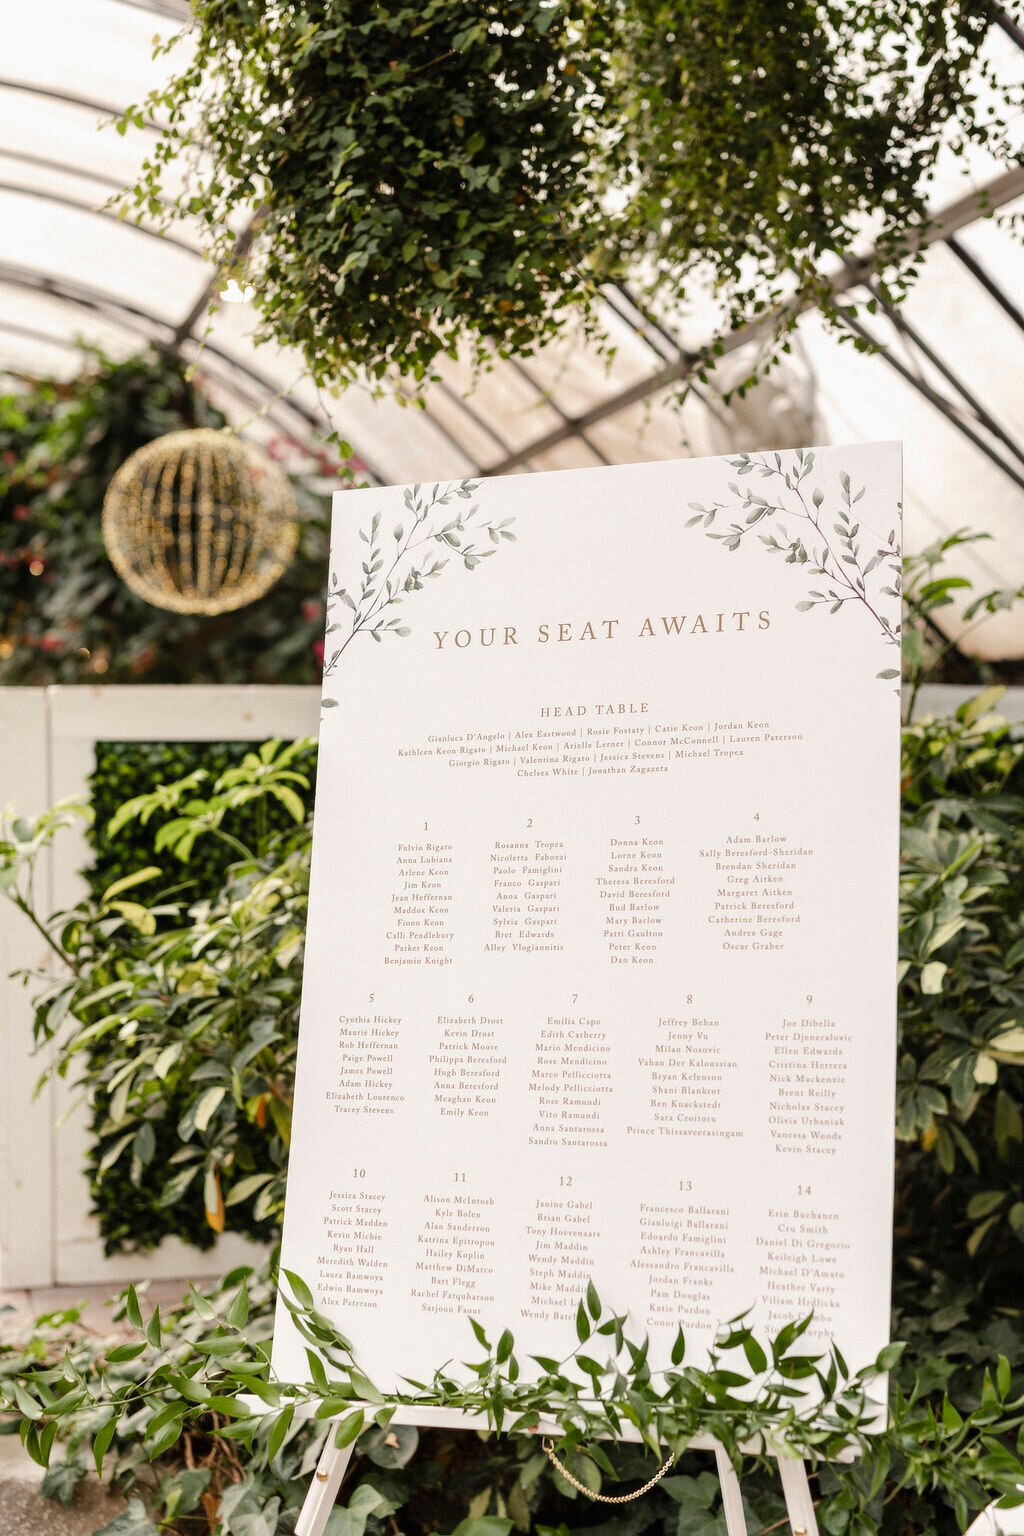 YOUR SEAT AWAITS
HEAD TABLE
Gianluca D'Angelo | Alex Eastwood | Rosie Fostaty | Catie Keon | Jordan Keon
Kathleen Keon Rigato | Michael Keon | Arielle Lerner | Connor McConnell | Lauren Paterson
Giorgio Rigato | Valentina Rigato | Jessica Stevens | Michael Tropea
Chelsea White | Jonathan Zagazeta
1
Fulvio Rigato
Anna Lubiana
Arlene Keon
Jim Keon
Jean Heffernan
Maddox Keon
Fionn Keon
Calli Pendlebury
Parker Keon
Benjamin Knight
2
Rosanna Tropea
Nicoletta Fabozzi
Paolo Famiglini
Franco Gaspari
Anna Gaspari
Valeria Gaspari
Sylvia Gaspari
Bret Edwards
Alley Vlogiannitis
3
Donna Keon
Lorne Keon
Sandra Keon
Theresa Beresford
David Beresford
Bud Barlow
Mary Barlow
Patti Gaulton
Peter Keon
Dan Keon
4
Adam Barlow
Sally Beresford-Sheridan
Brendan Sheridan
Greg Aitken
Margaret Aitken
Patrick Beresford
Catherine Beresford
Andree Gage
Oscar Graber
5
Cynthia Hickey
Maurie Hickey
Rob Heffernan
Paige Powell
James Powell
Adam Hickey
Elizabeth Lourenco
Tracey Stevens
6
Elizabeth Drost
Kevin Drost
Patrick Moore
Philippa Beresford
Hugh Beresford
Anna Beresford
Meaghan Keon
Emily Keon
7
Emilia Capo
Edith Carberry
Mario Mendicino
Rose Mendicino
Marco Pellicciotta
Melody Pellicciotta
Rose Ramundi
Vito Ramundi
Anna Santarossa
Sandro Santarossa
8
Jeffrey Behan
Jenny Vu
Milan Nosovic
Vahan Der Kaloussian
Bryan Kelenson
Shani Blankrot
Ben Knackstedt
Sara Croitoru
Prince Thissaveerasingam
9
Joe Dibella
Peter Djeneralovic
Ellen Edwards
Cristina Herrera
Nick Mackenzie
Brent Reilly
Nicholas Stacey
Olivia Urbaniak
Vanessa Woods
Kevin Stacey
10
Jessica Stacey
Scott Stacey
Patrick Madden
Kevin Michie
Ryan Hall
Meredith Walden
Laura Bamwoya
Edwin Bamwoya
Alex Paterson
11
Alison McIntosh
Kyle Bolen
Alan Sanderson
Katrina Epitropou
Hailey Koplin
Matthew DiMarco
Bart Flegg
Rachel Farquharson
Sarjoun Faour
12
Janine Gabel
Brian Gabel
Tony Hoevenaars
Jim Maddin
Wendy Maddin
Steph Maddin
Mike Maddin
Michael
Wendy
13
Francesco Ballarani
Gianluigi Ballarani
Edoardo Famiglini
Ashley Francavilla
Alessandro Francavilla
Jordan Franks
Pam Douglas
Katie Purdon
Conor Purdon
14
Erin Buchanen
Cru Smith
Daniel Di Gregorio
Keileigh Lowe
Michael D'Amato
Heather Varty
Viliam Hrdlicka
Jacob
Murphy